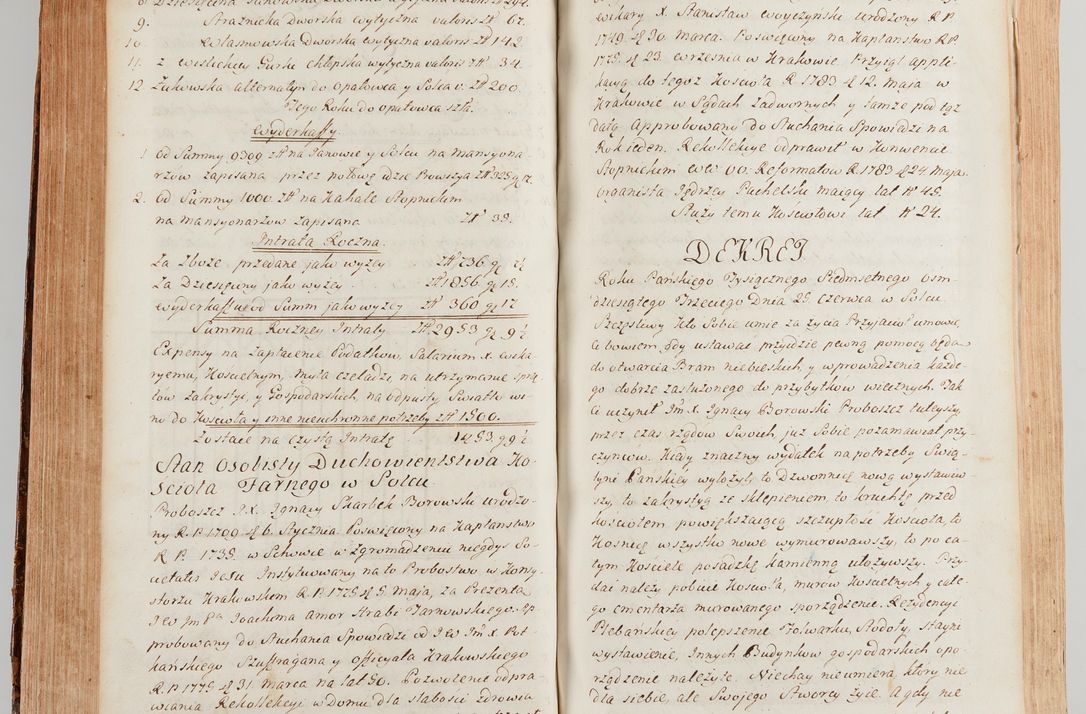 9. Strażnicka Dworska wytyczna valoris zł 67.
10 Kotasmowska Dworska wytyczna valoris zł 142
11 z wislickiey Gurki chłopska wytyczna valoris zł 34.
12 Żukowska alternatim do opatowca y Solca v. zł 200.
Tego Roku do opatowca szła.
Wyderkaffy.
1 od Summy 9309 zł na Janowie y Solcu na Mansyona-
rzow zapisana przez połowę dzie Prowizya zł 325 g 17.
2. od Summy 1000. zł na Kahale Stopnickim
na mansyonarzow zapisana zł 35.
Intrata Roczna.
Za Zboże przedane jako wyżey zł 736 g
Za Dziesięciny jako wyżey zł 1856 g 15.
wyderkaffu od Summ jako wyżey zł 360 g 17
Summa Roczney Intraty zł 2953 g 9 ½
Expensy na zapłacenie Podatkow, Salarium x. wika-
ryemu, Kościelnym, myta czeladzi, na utrzymanie sprzę-
tow zakrystyi, y Gospodarskich, na odpusty Światło wi-
no do Kościoła y inne nieuchronne potrzeby zł 1500.
Zostaie na czystą Intratę 1453 g 9 ½
Stan osobisty Duchowieństwa Ko-
scioła Farnego w Solcu.
Proboszcz J.X. Ignacy Skarbek Borowski urodzo-
ny R.P. 1709 d 6. Stycznia. Poświęcony na Kapłanstwo
R P. 1735 w Lwowie w Zgromadzeniu niegdys So-
cietatis Jesu Instytuowany na to Probostwo w Konsy-
storzu Krakowskim R.P. 1775 d 5. maja, za Prezentą
J W Jm Pa Joachima Amor Hrabi Tarnowskiego. Ap-
probowany do słuchania Spowiedzi od J W Jm X. Pot-
kańskiego Szuffragana y officyała Krakowskiego
R.P. 1775 d 31. marca na lat 50. Pozwolenie odpra-
wiania Rekollekcyi w Domu dla słabości zdrowia
wikary X. Stanisław Woyczyński urodzony R P.
1749. d 30. marca. Poświęcony na Kapłanstwo R.P.
1775. d 23. września w Krakowie. Przysągł appli-
kacyą do tegoż Kościoła R. 1783 d 12. maja w
Krakowie w Sądach Zadwornych y tamże pod tąż
datą Approbowany do słuchania Spowiedzi na
Rok ieden. Rekollekcye odprawił w Konwencie
Stopnickim WW. OO. Reformatow R. 1783 d 24 maja.
Organista Jędrzey Puchelski maiący lat N 45.
Służy temu Kościołowi lat N 24.
DEKRET
Roku Pańskiego Tysiącznego Siedmsetnego osm-
dziesiątego Trzeciego Dnia 25 czerwca w Solcu
Szczęśliwy Kto Sobie umie za życia Przyjacioł umowić,
ci bowiem gdy ustawać przyidzie pewną pomocą będą
do otwarcia Bram niebieskich, y wprowadzenia każde-
go dobrze zasłużonego do przybytkow wiecznych. Tak
Ci uczynił Jm X. Ignacy Borowski Proboszcz tuteyszy,
przez czas rządow Swoich, już Sobie pozamawiał przy-
czyncow. Kiedy znaczny wydatek na potrzeby Świą-
tyni Pańskiey wyłożył, to Dzwonnicę nową wystawiw-
szy, to zakrystyą ze sklepieniem, to kruchtę przed
kościołem powiększaiącą szczupłość Kościoła, to
Kosnicę wszystko nowe wymurowawszy, to po ca-
łym Kościele posadzkę kamienną ułożywszy. Przy-
dać należy pobicie Kościoła, murow Kościelnych y całe-
go cmentarza murowanego sporządzenie. Rezydencyi
Plebańskiey polepszenie Folwarku, Stodoły, stayni
wystawienie, Innych Budynkow gospodarskich opo-
rządzenie należyte. Niechay nieumiera, który nie
dla siebie, ale Swojego Stworcy żyie. A gdy nie